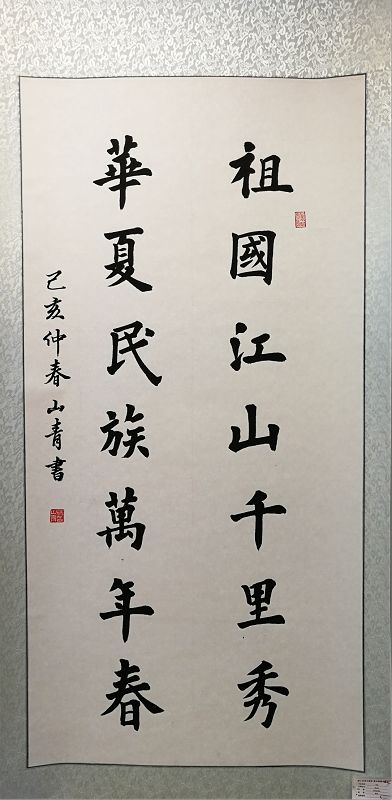 祖國江山千里秀
華夏民族萬年春
己亥仲春山青書